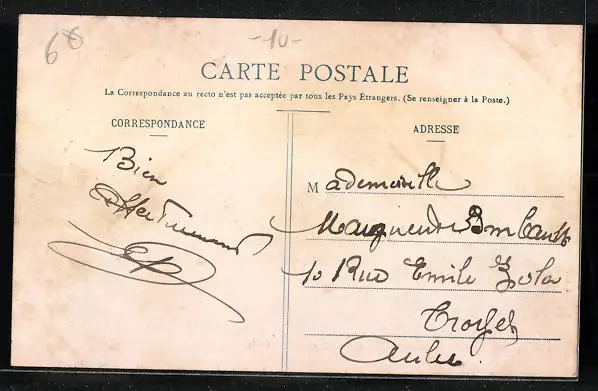 68
-10-
CARTE POSTALE
La Correspondance au recto n'est pas acceptée par tous les Pays Étrangers. (Se renseigner à la Poste.)
CORRESPONDANCE
ADRESSE
Bien
Affectueusement
Mademoiselle
Marguerite
10 Rue Emile Zola
Troyes
Aube.